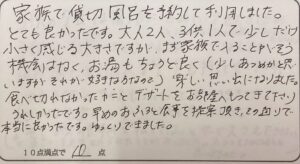 家族で貸切風呂を予約して利用しました。
とても良かったです。大人2人、子供1人で少しだけ
小さく感じる大きさですが、まず家族で入ることがそう
機会はなく、お湯もちょうど良く(少しあつめかと思
いますが それが好きなので)
楽しい思い出になりました。
食べ切れなかったカニとデザートをお部屋へもってきて下さり
うれしかったです。早めのおふろと食事を提案頂き、その通りで
本当に良かったです。ゆっくりできました。
10点満点で 10 点